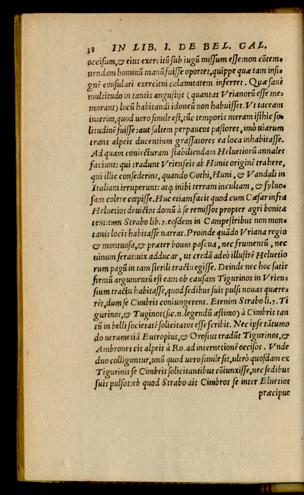 38 IN LIB. I. DE BEL. GAL.
occisum, & eius exercitũ sub iugũ missum esse: non cõtem-
nendam hominũ manũ fuisse oportet, quippe quæ tam insi-
gnē consulari exercitui calamitatem inferret. Quæ sanè
multitudo in tantis angustijs (quantas Vrianorũ esse me-
morant) locũ habitandi idoneũ non habuisset. Vt taceam
interim, quod uero simile est, tũc temporis meram isthic so-
litudinē fuisse: aut saltem perpaucos pastores, imò uiarum
trans alpeis ducentium grassatores ea loca inhabitasse.
Ad quam coniecturam stabiliendam Heluetiorũ annales
faciunt: qui tradunt Vrienseis ab Hunis originē trahere,
quòd illic consederint, quando Gothi, Huni, & Vandali in
Italiam irruperunt: atq; inibi terram incultam, & syluo-
sam colere cœpisse. Huc etiam facit quod cum Cæsar infra
Heluetios deuictos domũ à se remissos propter agri bonita
tem: tum Strabo lib. 7. eosdem in Campestribus non mon-
tanis locis habitasse narrat. Proinde quãdo Vriana regio
& montuosa, & præter bouum pascua, nec frumentũ, nec
uinum ferat: uix adducar, ut credã adeò illustrē Heluetio
rum pagũ in tam sterili tractu egisse. Deinde nec hoc satis
firmũ argumentũ est eam ob causam Tigurinos in Vrien-
sium tractu habitasse, quod sedibus suis pulsi nouas quære-
rēt, dum se Cimbris coniungerent. Etenim Strabo li. 7. Ti
gurinos, & Tuginos (sic. n. legendũ æstimo) à Cimbris tan
tũ in belli societatē solicitatos esse scribit. Nec ipse tătum
do uerumetiã Eutropius, & Orosius tradũt Tigurinos, &
Ambrones cis alpeis à Ro. ad internetionē occisos. Vnde
duo colliguntur, unũ quod uero simile sit, ultrò quosdam ex
Tigurinis se Cimbris solicitantibus cõiunxisse, nec sedibus
suis pulsos: eò quod Strabo ait Cimbros se inter Eluetios
præcipue